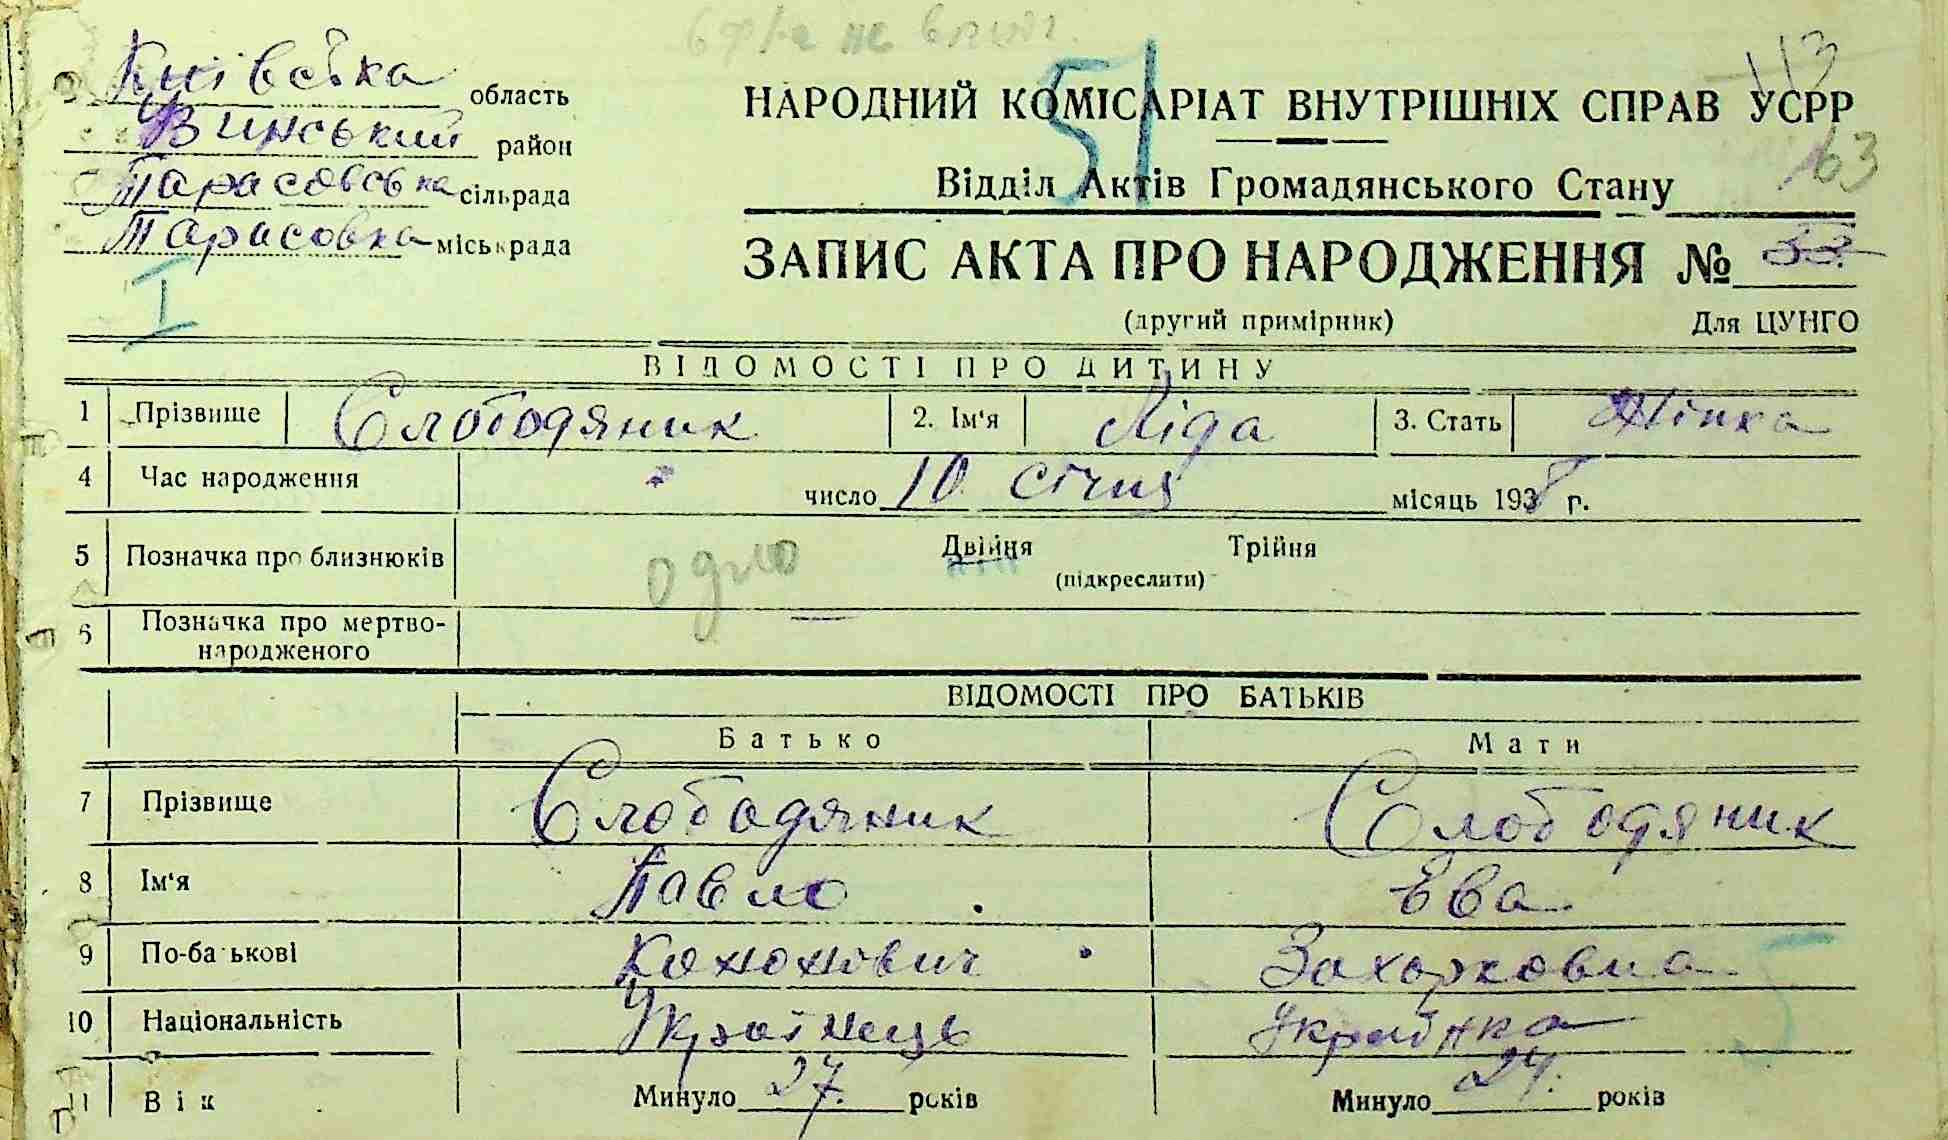 Київська область
Винський район
Тарасовська сільрада
Тарасовка міськрада
І
51
113
163
НАРОДНИЙ КОМІСАРІАТ ВНУТРІШНІХ СПРАВ УСРР
Відділ Актів Громадянського Стану
ЗАПИС АКТА ПРО НАРОДЖЕННЯ № 33
(другий примірник) Для ЦУНГО
ВІДОМОСТІ ПРО ДИТИНУ
1 Прізвище Слободяник 2. Ім'я Ліда 3. Стать Жінка
4 Час народження число 10 січня місяць 1938 г.
5 Позначка про близнюків одно Двійня Трійня
(підкреслити)
6 Позначка про мертво-
народженого
ВІДОМОСТІ ПРО БАТЬКІВ
Батько Мати
7 Прізвище Слободяник Слободяник
8 Ім'я Павло Ева
9 По-батькові Кононович Захорковна
10 Національність Українець Українка
11 Вік Минуло 27 років Минуло 24 років